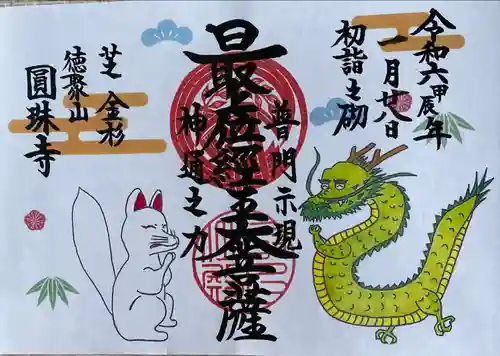 令和六甲辰年
一月廿八日
初詣之砌
普門示現
最上位經王大菩薩
神通之力
芝 金杉
徳聚山
圓珠寺